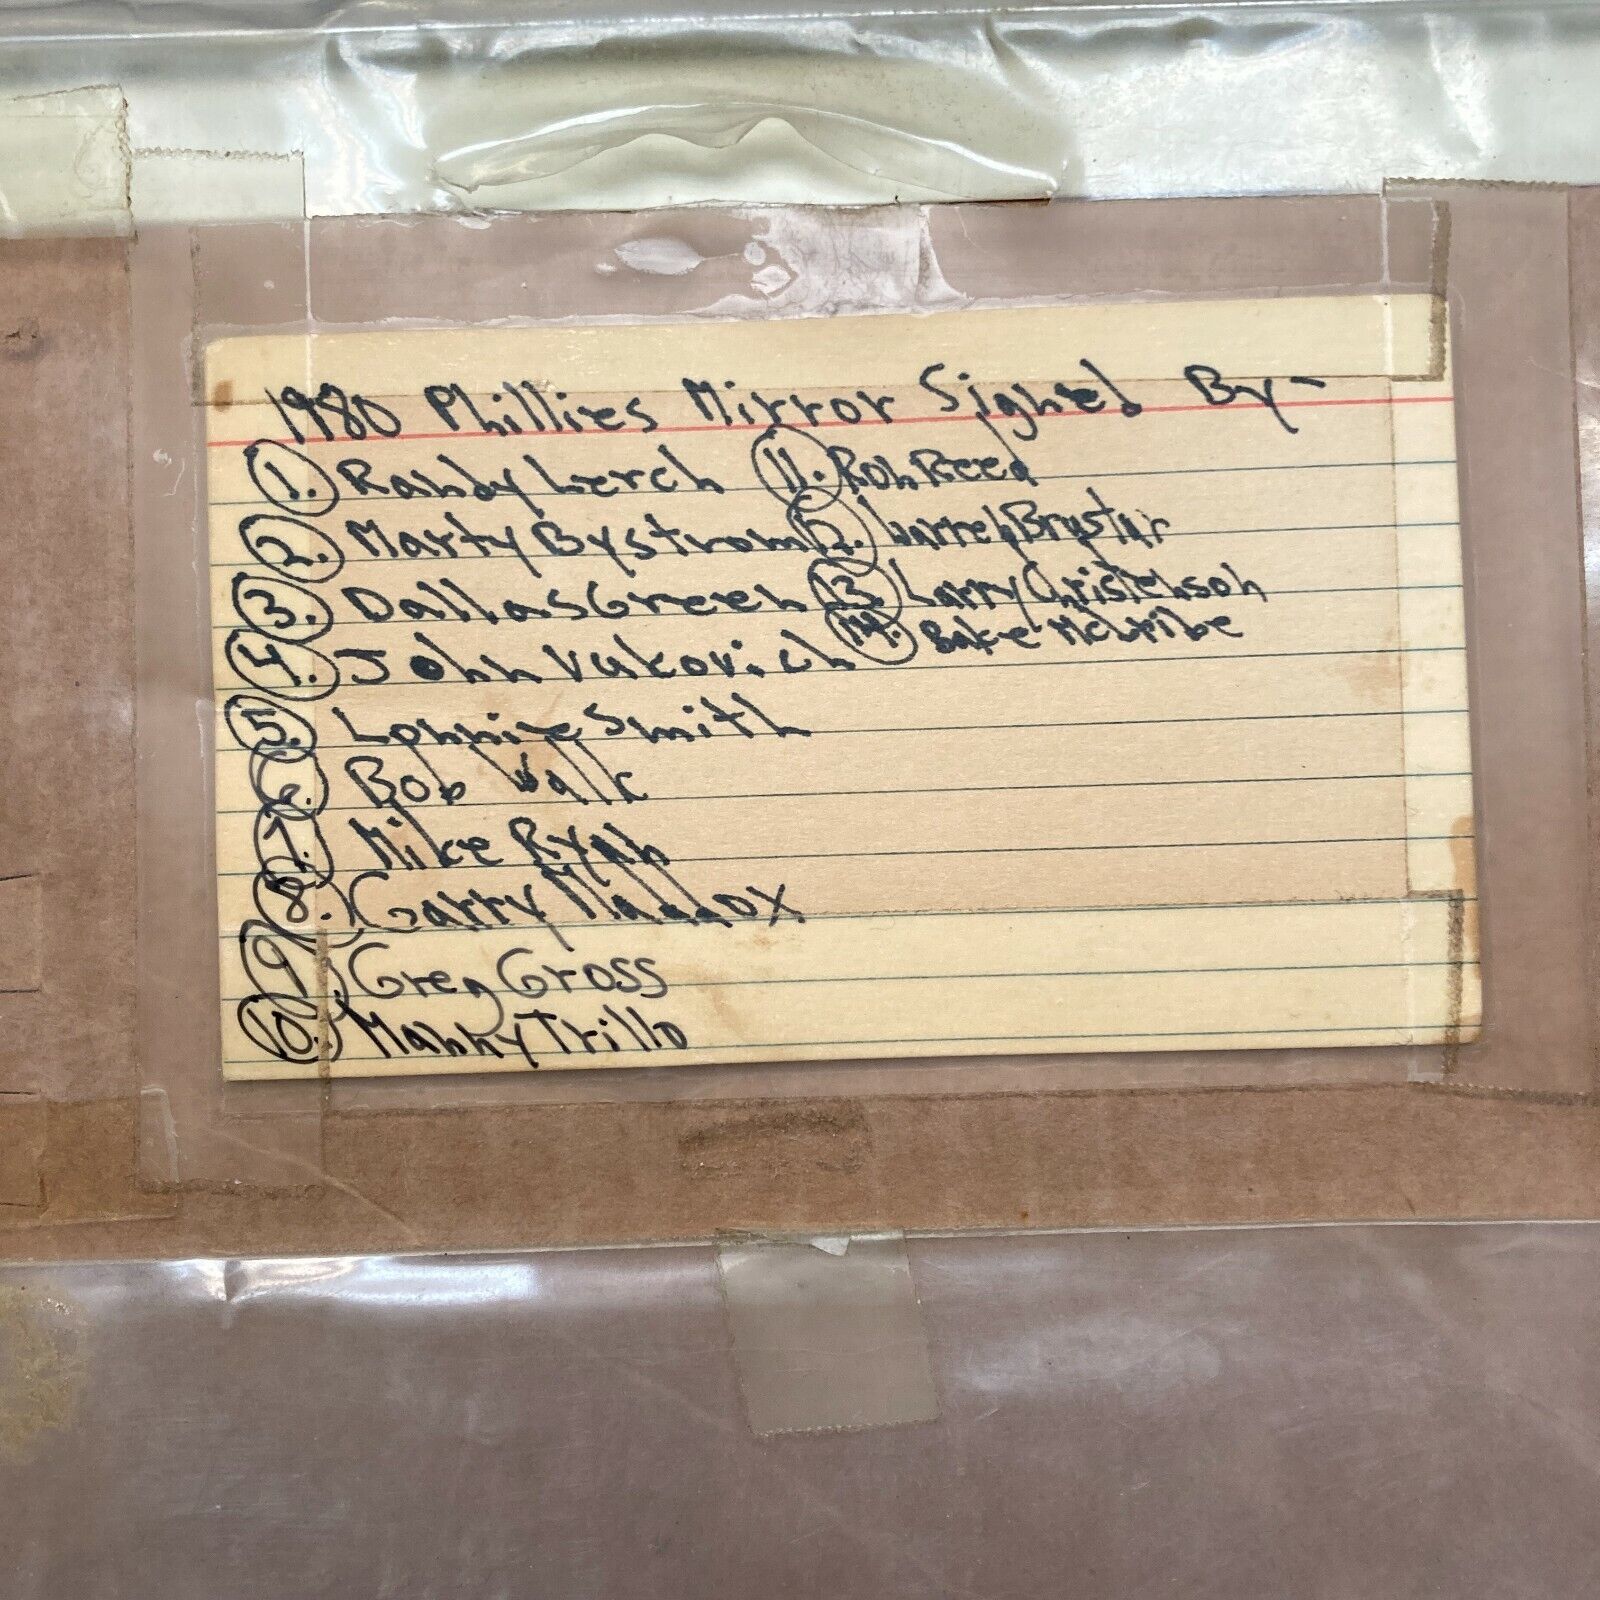 1980 Phillies Mirror Signed By-
1. Randy Lerch 11. Ron Reed
2. Marty Bystrom 12. Warren Brystar
3. Dallas Green 13. Larry Christenson
4. John Vukovich 14. Bake McBride
5. Lonnie Smith
6. Bob Walk
7. Mike Ryan
8. Garry Maddox
9. Greg Gross
10. Manny Trillo